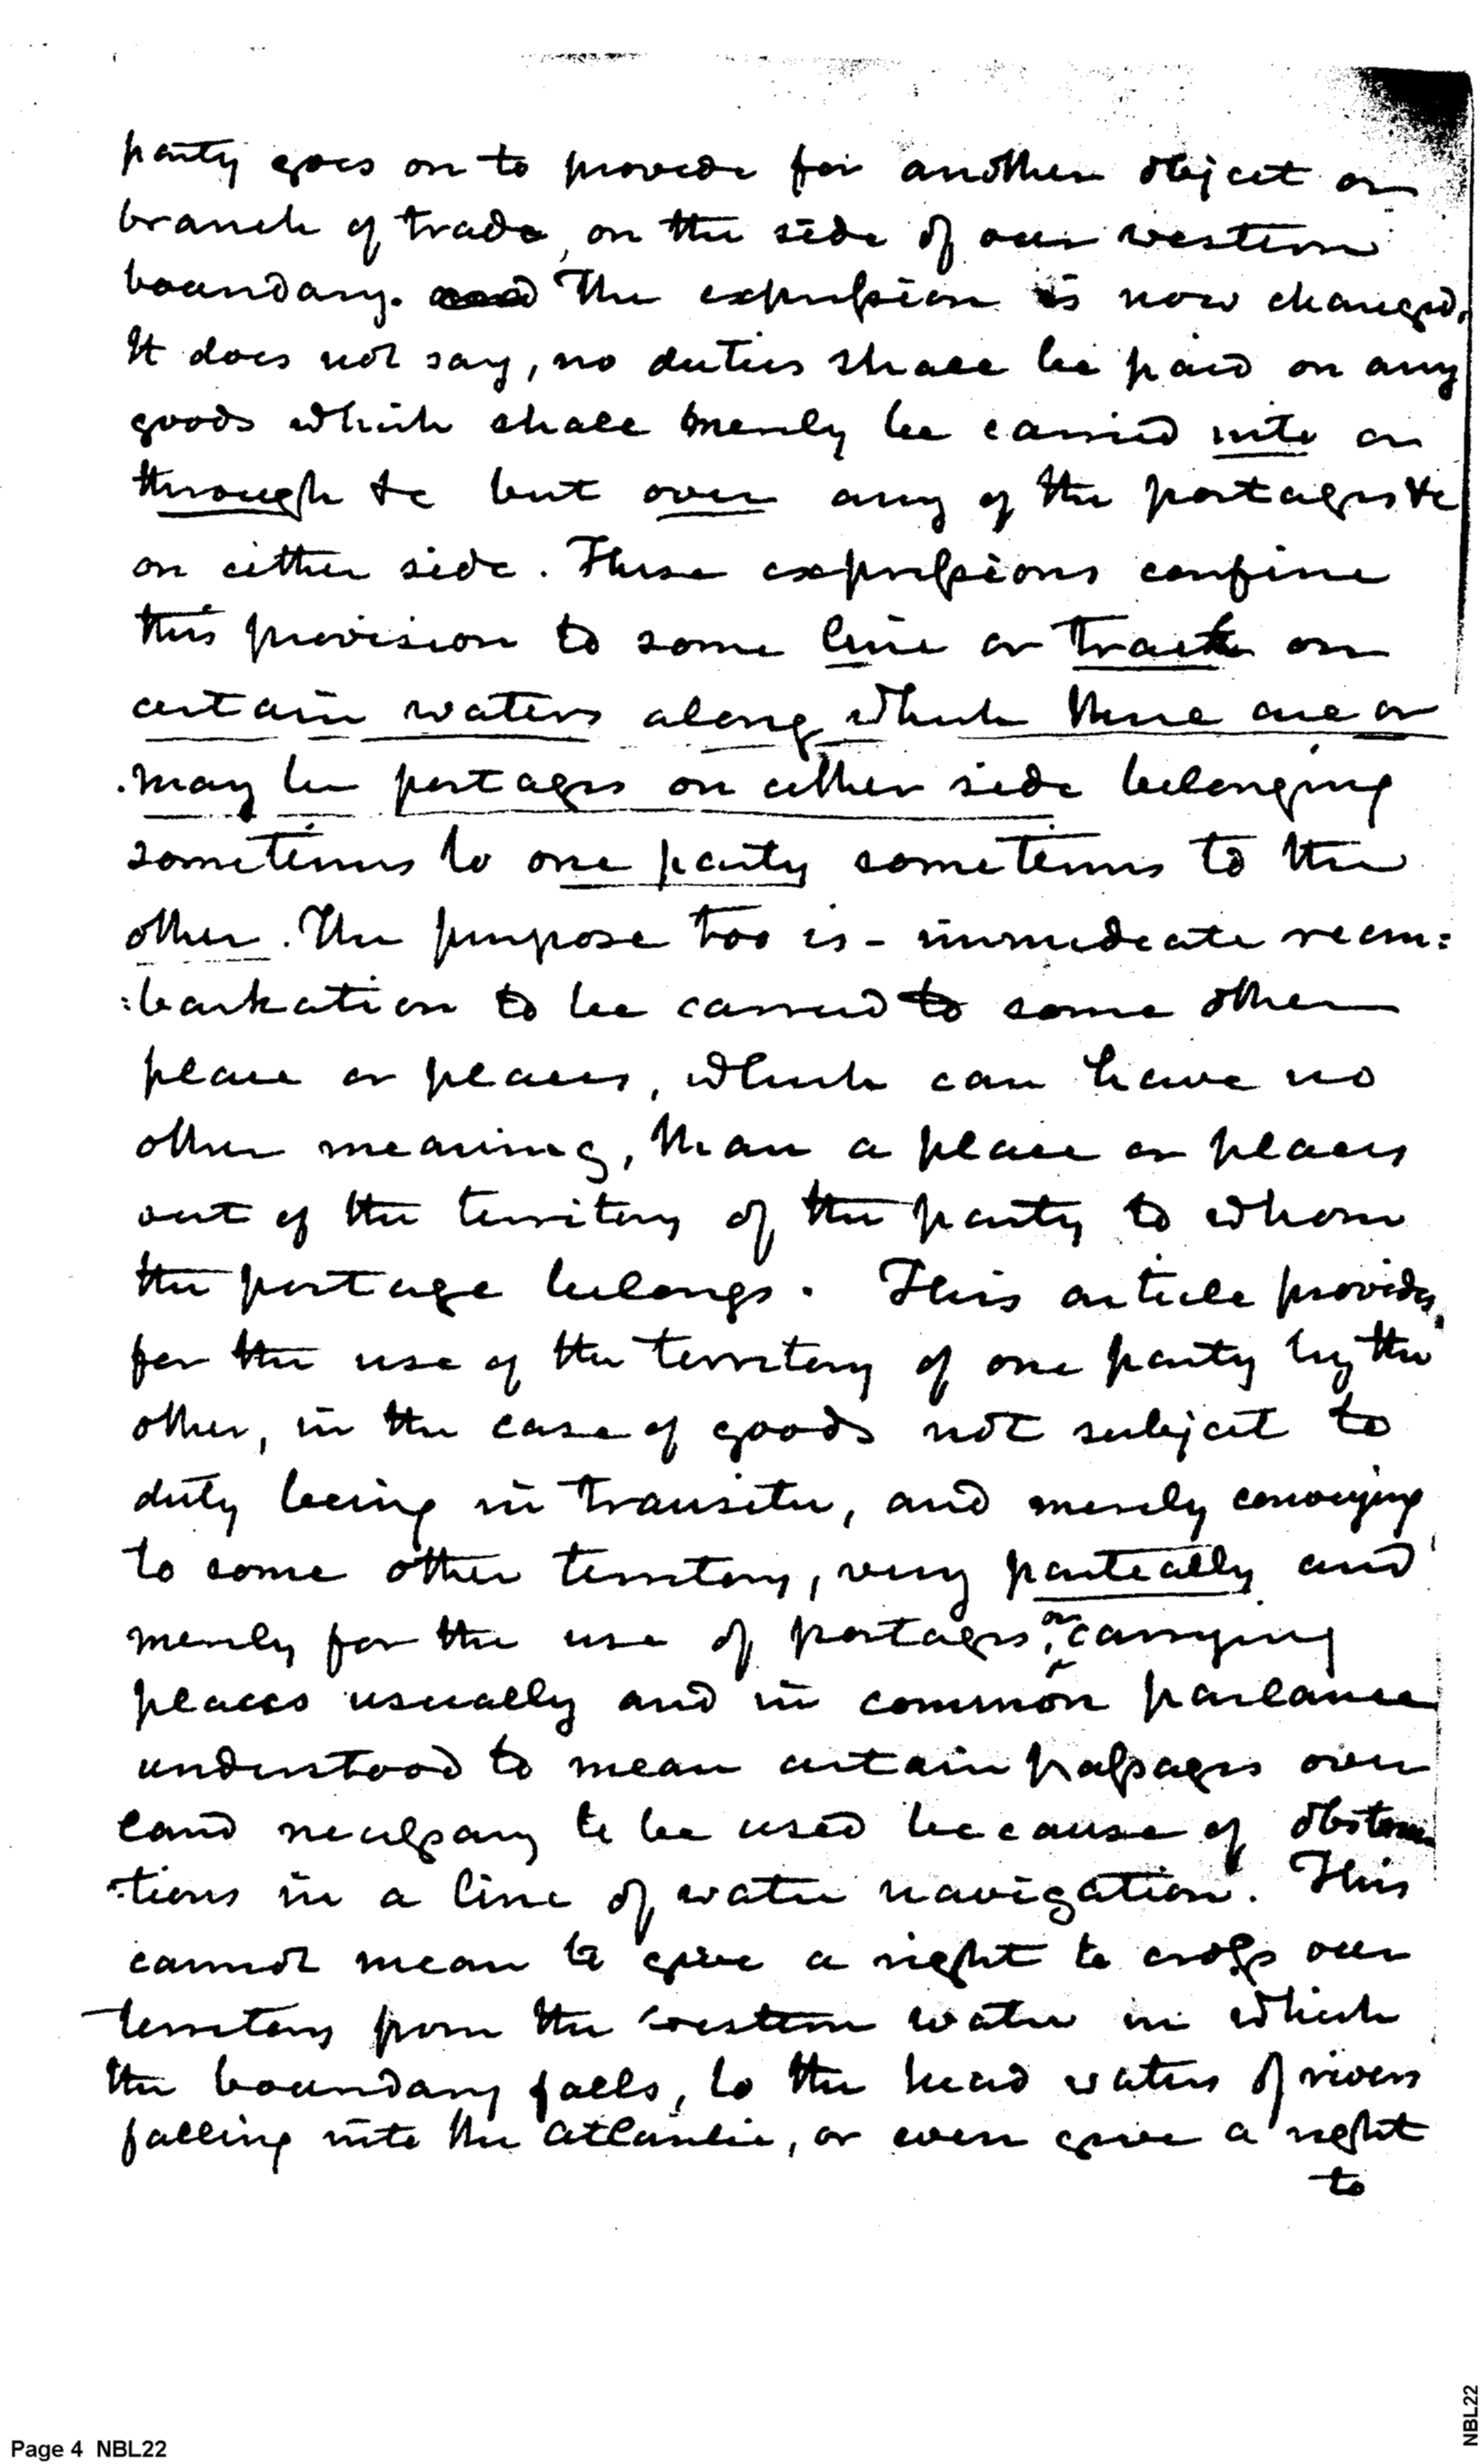 party goes on to provide for another object or
branch of trade, on the side of our western
boundary. The expression is now changed.
It does not say, no duties shall be paid on any
goods which shall merely be carried into or
through &c but over any of the portages &c
on either side. These expressions confine
this provision to some line or track on
certain waters along which there are or
may be portages on either side belonging
sometimes to one party sometimes to the
other. The purpose too is - immediate reem:
:barkation to be carried to some other
place or places, which can have no
other meaning, than a place or places
out of the territory of the party to whom
the portage belongs. This article provides
for the use of the territory of one party by the
other, in the case of goods not subject to
duty being in transitu, and merely conveying
to some other territory, very partially and
merely for the use of portages, or carrying
places usually and in common parlance
understood to mean certain passages over
land necessary to be used because of obstruc
-tions in a line of water navigation. This
cannot mean to give a right to cross our
territory from the western water in which
the boundary falls, to the head waters of rivers
falling into the Atlantic, or even give a right
to
Page 4 NBL22
NBL22